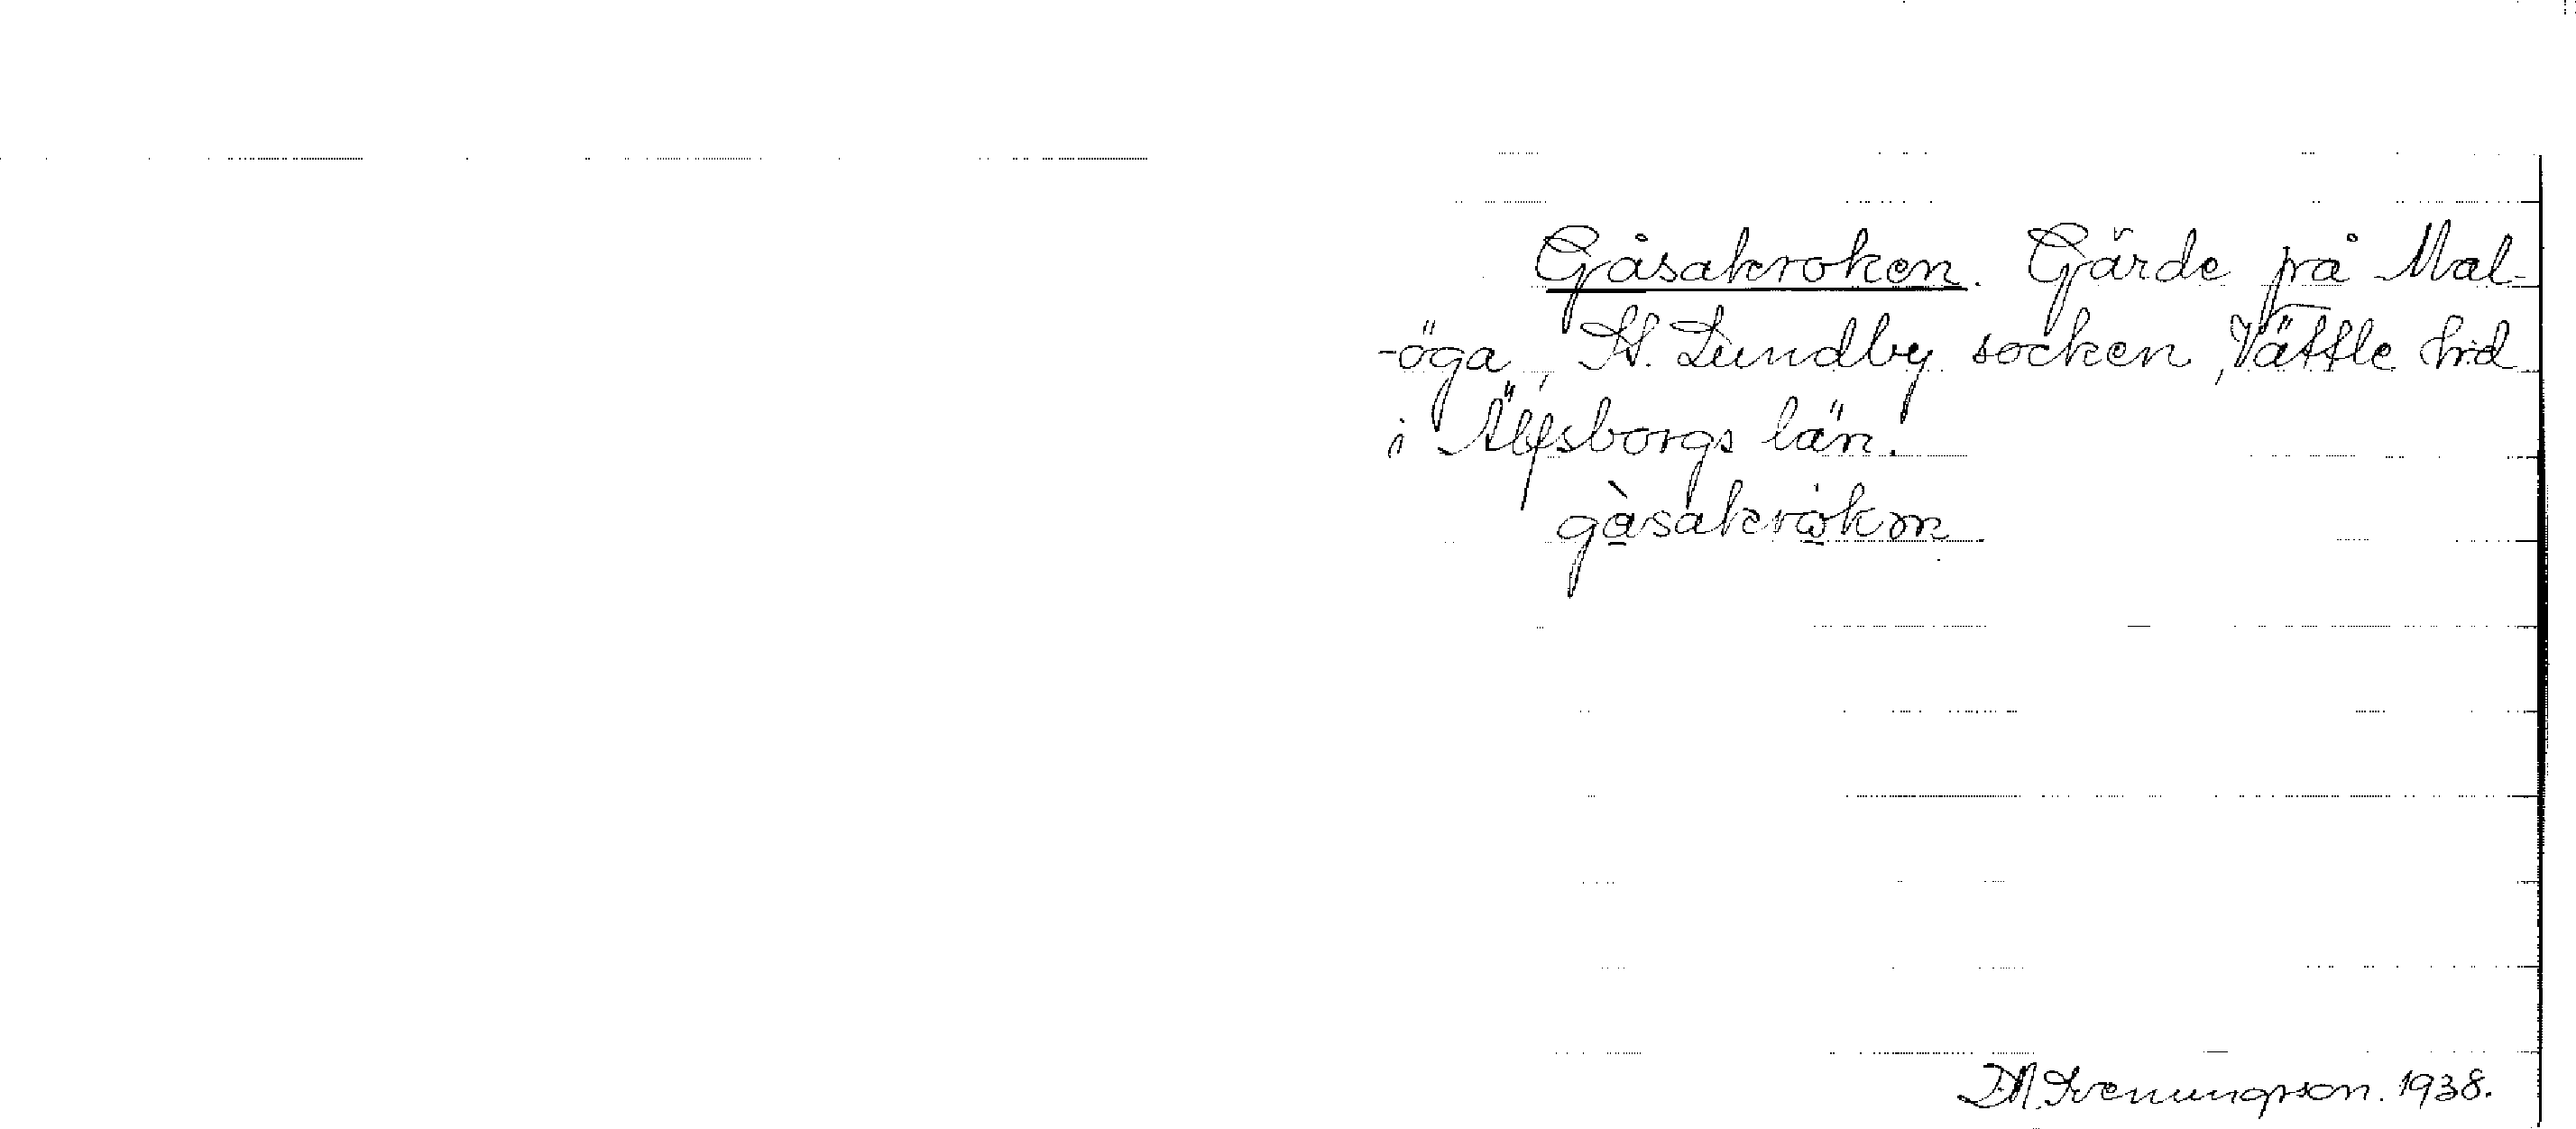 Gåsakroken. Gärde på Mal-
-öga, St. Lundby socken, Vättle hrd
i Älfsborgs län.
gàsakrokɷn
D.N. Svenungsson. 1938.